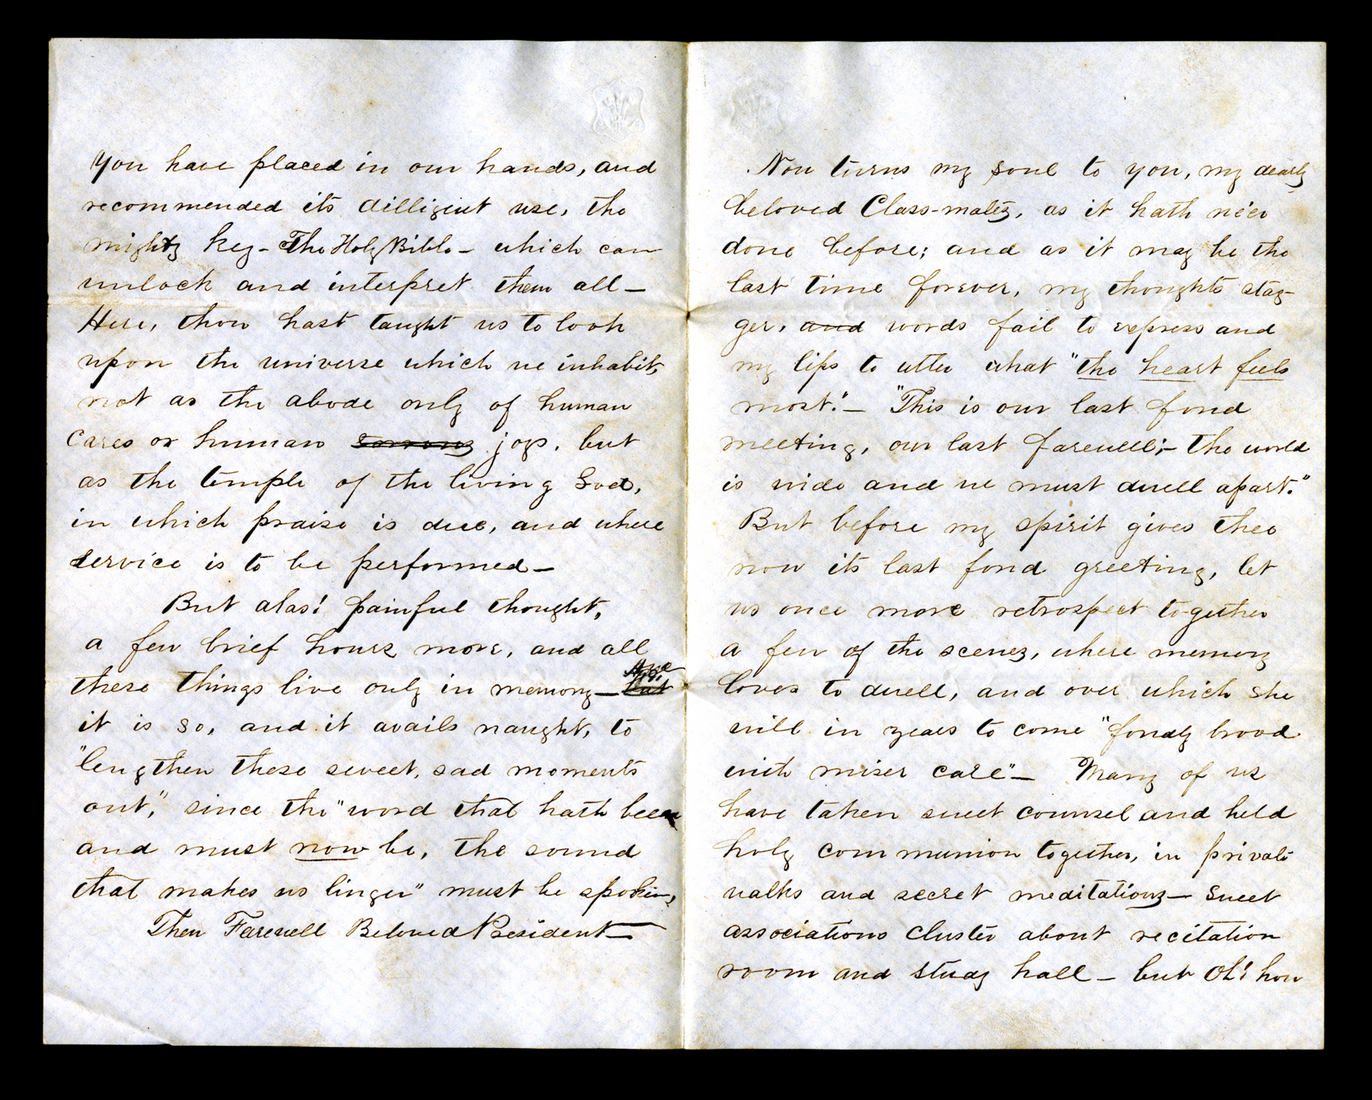 You have placed in our hands, and
recommended its dilligent use, the
mighty key - The Holy Bible - which can
unlock and interpret them all -
Here, thou hast taught us to look
upon the universe which we inhabit,
not as the abode only of human
cares or human sorrows joys, but
as the temple of the living God,
in which praise is due, and where
service is to be performed -
But alas! painful thought,
a few brief hours more, and all
these things live only in memory - But
it is so, and it avails naught, to
"lengthen these sweet, sad moments
out," since the "word that hath been
and must now be, the sound
that makes us linger" must be spoken,
Then Farewell Beloved President -
Now turns my soul to you, my dearly
beloved Class-mates, as it hath ne'er
done before; and as it may be the
last time forever, my thoughts stag-
ger, and words fail to express and
my lips to utter what "the heart feels
most." - "This is our last fond
meeting, our last farewell; - the world
is wide and we must dwell apart."
But before my spirit gives thee
now its last fond greeting, let
us once more retrospect together
a few of the scenes, where memory
loves to dwell, and over which she
will in years to come "fondly brood
with miser care" - Many of us
have taken sweet counsel and held
holy communion together, in private
walks and secret meditations - Sweet
associations cluster about recitation
room and study hall - but Oh! how